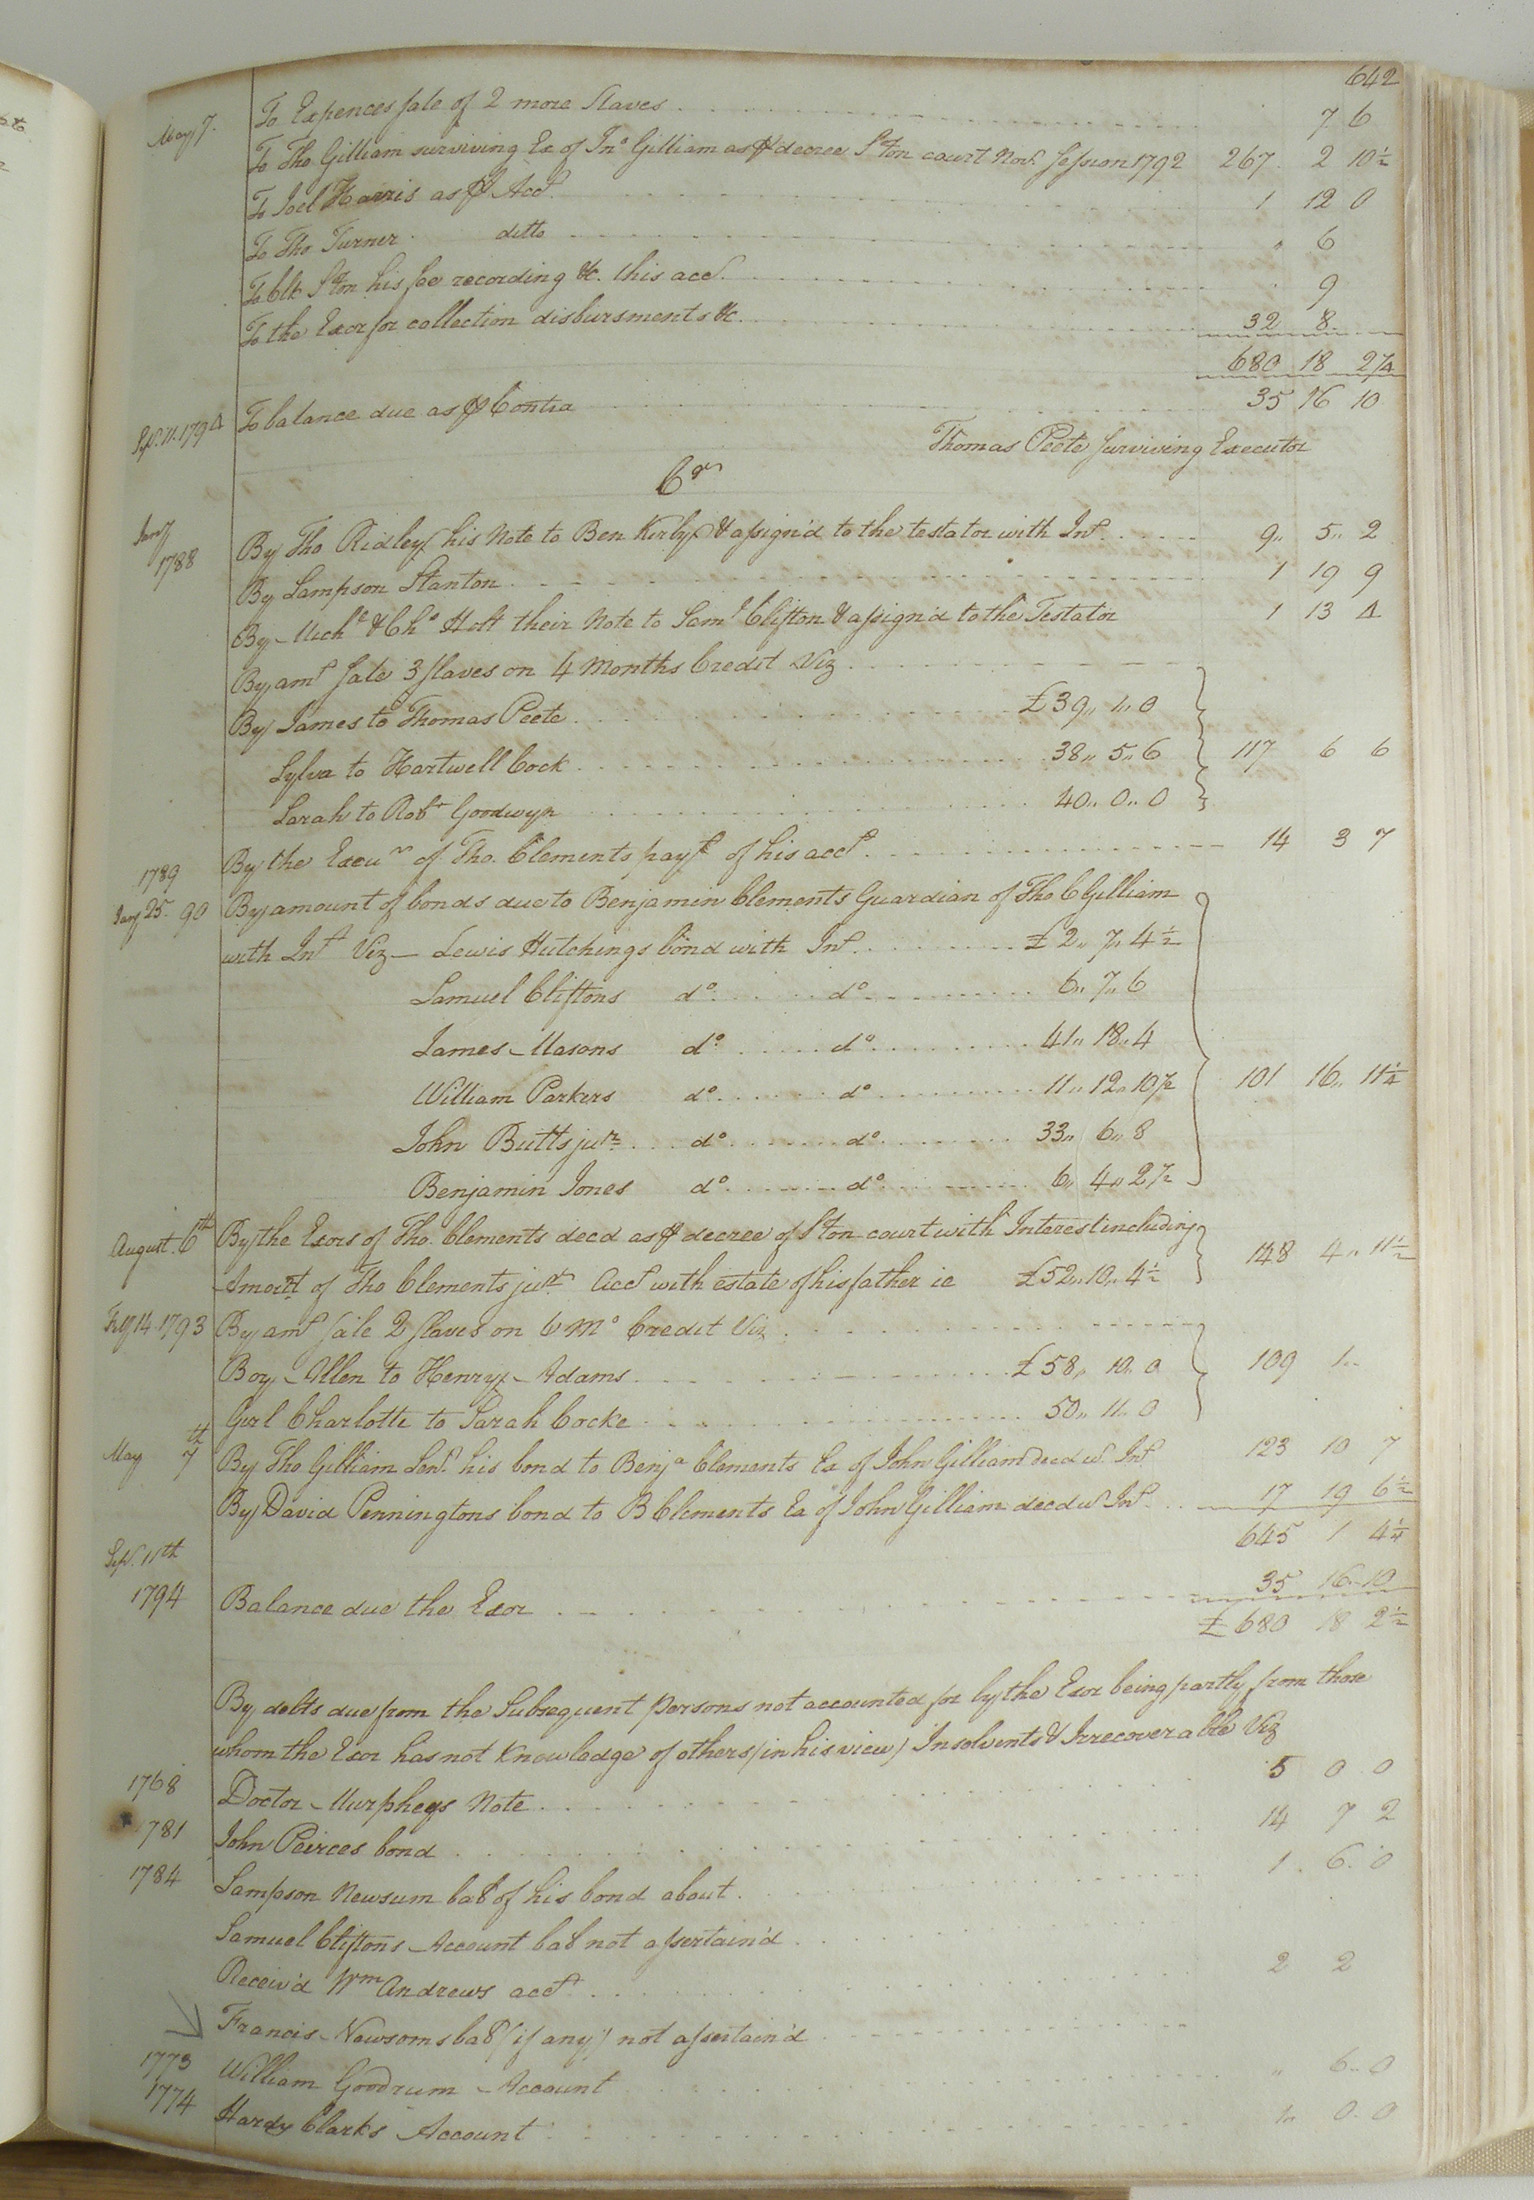 642
May 7. To Expences sale of 2 more Slaves 7 6
To Tho Gilliam surviving Ex of Jno Gilliam as ⅌ decree Sºton court Novr. Session 1792 267 2 10½
To Joel Harris as ⅌ Acct. 1 12 0
To Tho Turner ditto " 6
To Clk Sºton his fee recording &c. this acct. 9
To the Exor for collection disbursments &c. 32 8
680 18 2¼
Sept. 11. 1794 To balance due as ⅌ Contra 35 16 10
Thomas Peete surviving Executor
Cr
Jany 1788 By Tho Ridley his Note to Ben Kirby & assign'd to the testator with Int. 9 5 2
By Sampson Stanton 1 19 9
By Michl & Chs Holt their Note to Saml Clifton & assign'd to the Testator 1 13 4
By amt sale 3 slaves on 4 Months Credit Viz
By James to Thomas Peete £39 1 0
Sylva to Hartwell Cock 38 5 6 117 6 6
Sarah to Robt Goodwyn 40 0 0
1789 By the Exeurs of Tho. Clements payt of his acct. 14 3 7
Jany 25. 90 By amount of bonds due to Benjamin Clements Guardian of Tho C Gilliam
with Int Viz — Lewis Hutchings bond with Int. £2 7 4½
Samuel Cliftons do. do. 6 7 6
James Masons do. do. 41 18 4
William Parkers do. do. 11 12 10½ 101 16 11¼
John Butts junr. do. do. 33 6 8
Benjamin Jones do. do. 6 4 2½
August 6th By the Exors of Tho. Clements decd as ⅌ decree of Sºton court with Interest including
Amount of Tho Clements junr. Acct with estate of his father ie £52 10 4½ 148 4 11½
Feby 14 1793 By amt sale 2 slaves on 6 Mo Credit Viz
Boy Allen to Henry Adams £58 10 0 109 1
Girl Charlotte to Sarah Cocke 50 11 0
May 7th By Tho Gilliam Senr. his bond to Benja Clements Ex of John Gilliam decd w. Int 123 10 7
By David Penningtons bond to B Clements Ex of John Gilliam decd w. Int. 17 19 6½
645 1 4¼
Sept. 11th
1794 Balance due the Exor 35 16 10
£680 18 2½
By debts due from the Subsequent persons not accounted for by the Exor being partly from those
whom the Exor has not knowledge of others (in his view) Insolvents & Irrecoverable Viz
1768 Doctor Murpheys Note 5 0 0
781 John Peirces bond 14 7 2
1784 Sampson Newsum bal of his bond about 1 6 0
Samuel Cliftons Account bal not assertain'd
Receiv'd Wm Andrews acct. 2 2
Francis Newsoms bal (if any) not assertain'd
1773 William Goodrum Account " 6 0
1774 Hardy Clarks Account 1 0 0